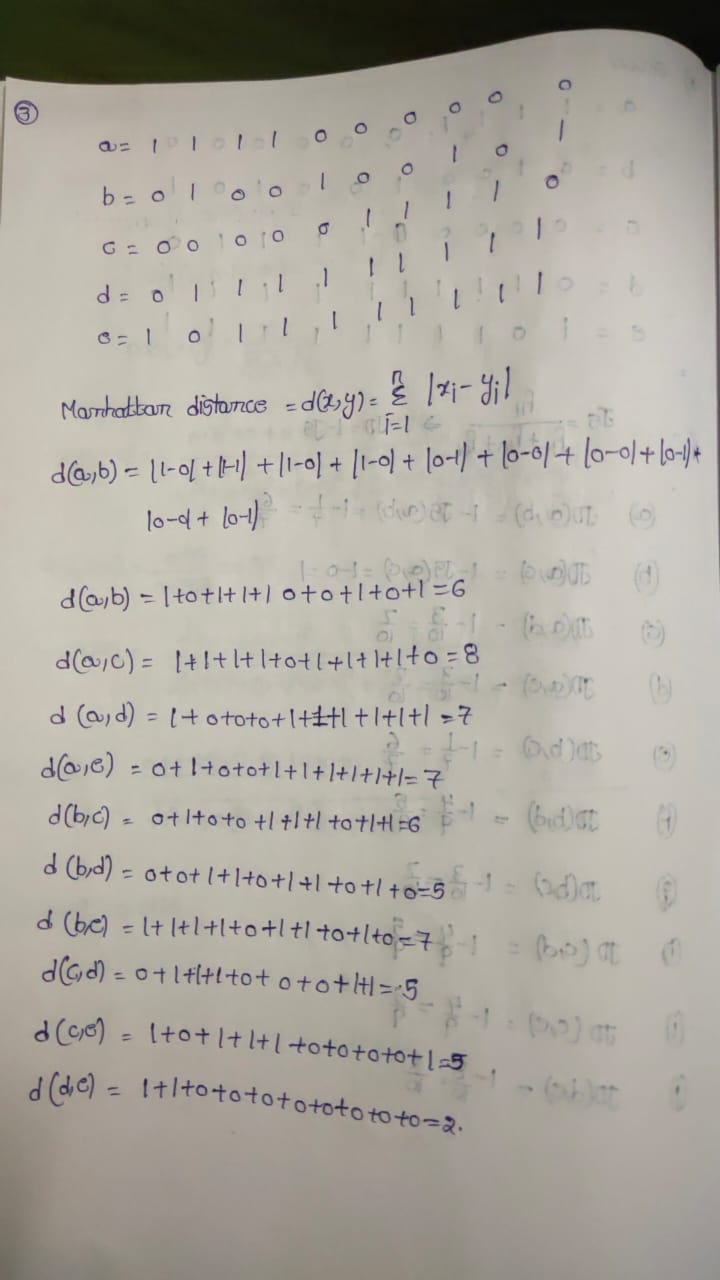 ③
a = 1 1 1 1 0 0 0 0 0 0
b = 0 1 0 0 1 0 0 1 0 1
c = 0 0 0 0 0 1 1 1 1 0
d = 0 1 1 1 1 1 1 1 1 1
e = 1 0 1 1 1 1 1 1 1 1
Manhattan distance = d(x,y) = n Σ i=1 |xi - yi|
d(a,b) = |1-0| + |1-1| + |1-0| + |1-0| + |0-1| + |0-0| + |0-0| + |0-1| +
|0-0| + |0-1|
d(a,b) = 1+0+1+1+1 0+0+1+0+1 = 6
d(a,c) = 1+1+1+1+0+1+1+1+1+0 = 8
d(a,d) = 1+0+0+0+1+1+1+1+1+1 = 7
d(a,e) = 0+1+0+0+1+1+1+1+1+1 = 7
d(b,c) = 0+1+0+0+1+1+1+0+1+1 = 6
d(b,d) = 0+0+1+1+0+1+1+0+1+0 = 5
d(b,e) = 1+1+1+1+0+1+1+0+1+0 = 7
d(c,d) = 0+1+1+1+0+0+0+1+1 = 5
d(c,e) = 1+0+1+1+1+0+0+0+0+1 = 5
d(d,e) = 1+1+0+0+0+0+0+0+0+0 = 2.